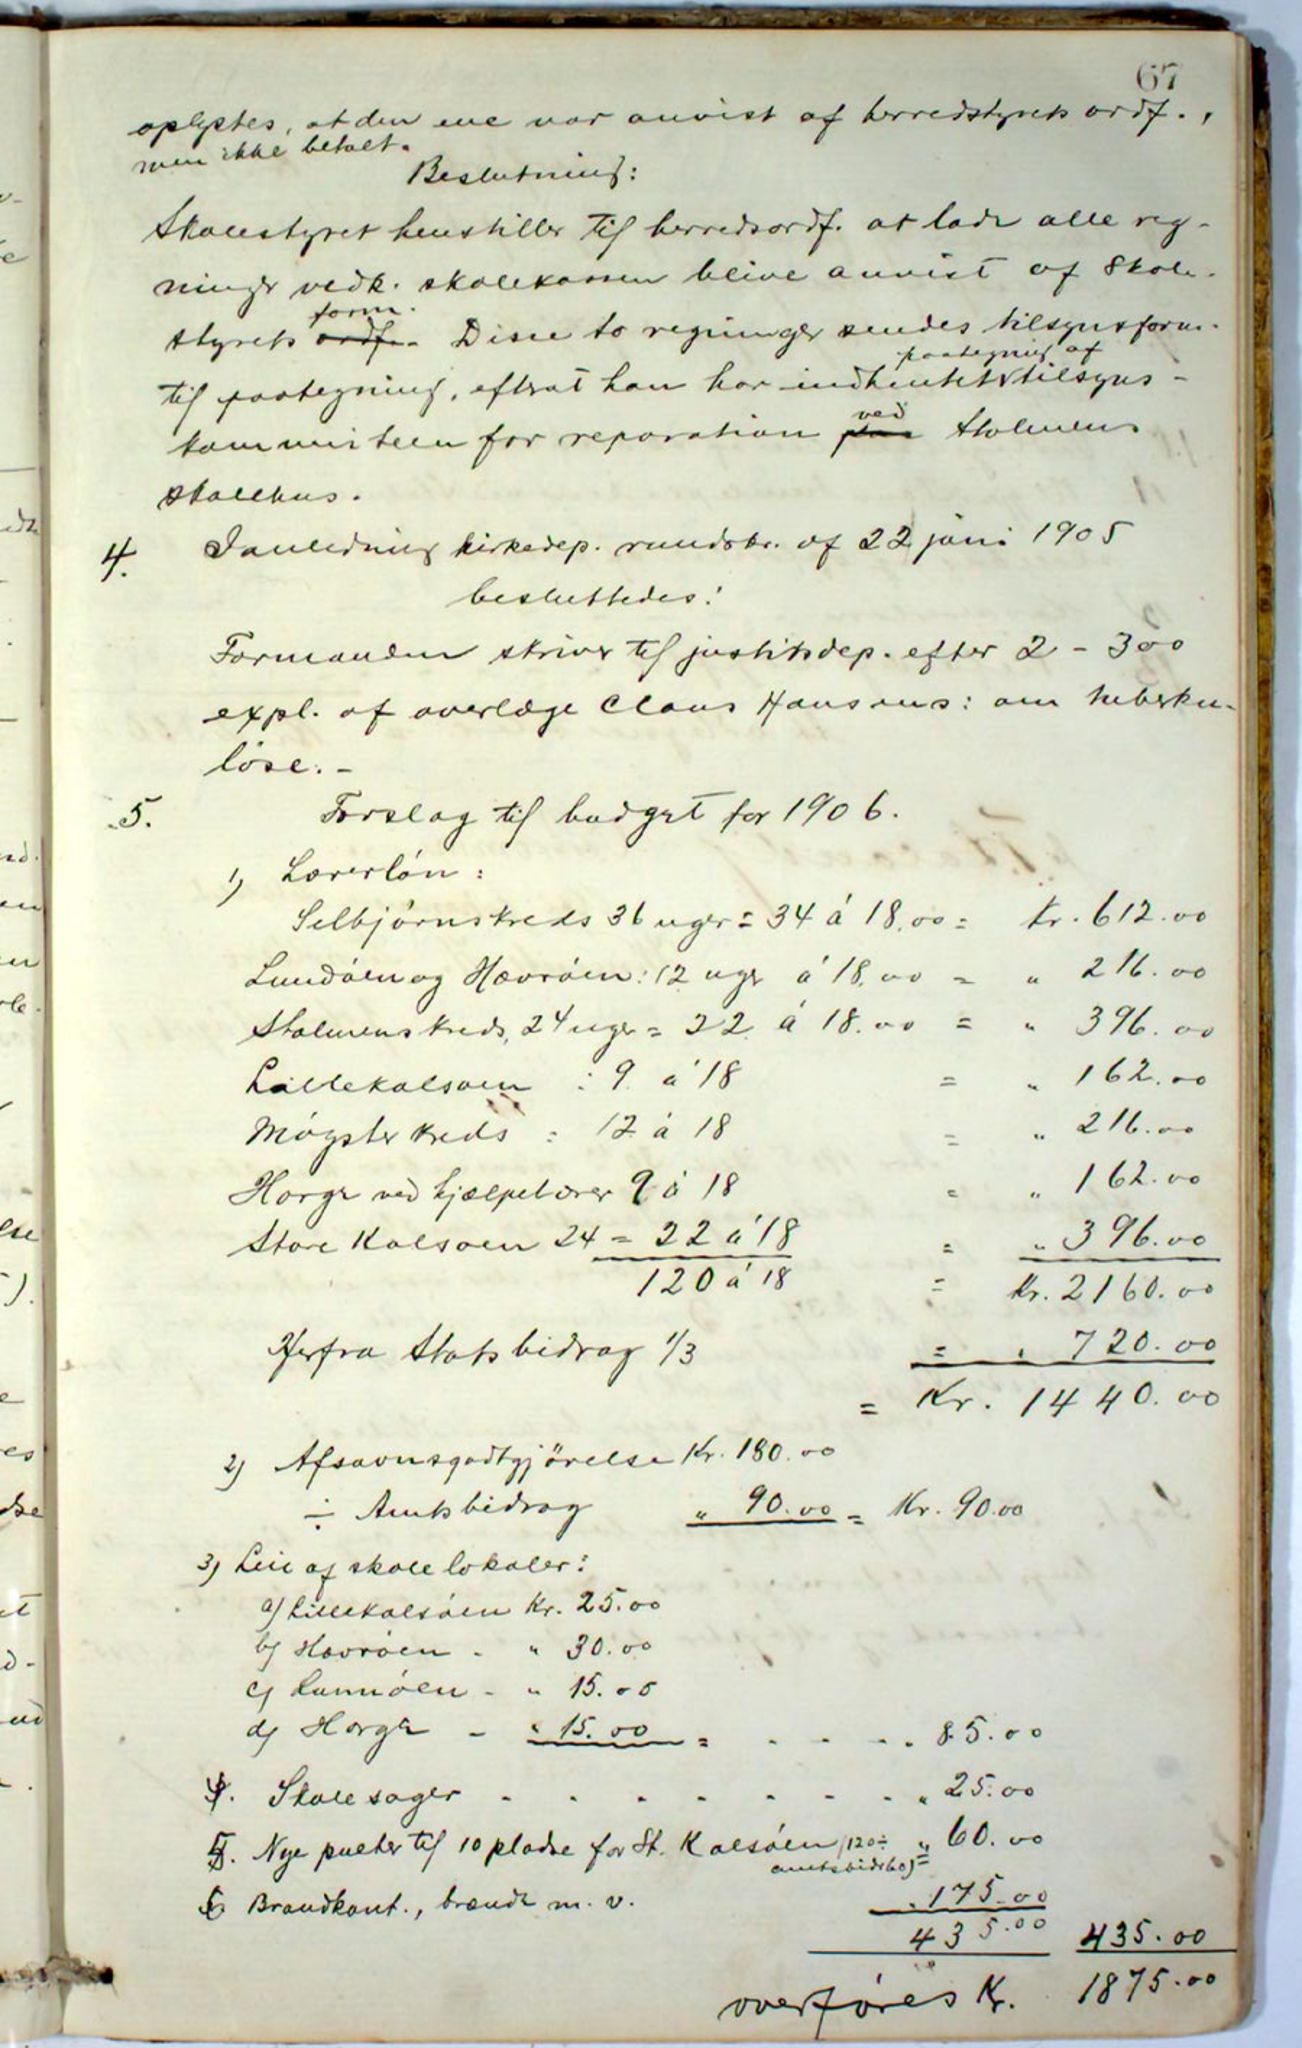 67
oplystes, at den ene var anvist af herredstyrets ordf.,
men ikke betalt.
Beslutning:
Skolestyret henstiller til herredsordf. at lade alle reg-
ninger vedk. skolekassen blive anvist af skole-
form.
styrets ordf. Disse to regninger sendes tilsynsform.
paategning af
til paategning, efterat han har indhentet tilsyns-
ved
kommisteen for reparation paa Stolmens
skolehus.
4. I anledning kirkedep. rundskr. af 22 juni 1905
besluttedes:
Formanden skriver til justitsdep. efter 2 - 300
expl. af overlæge Claus Hansens: om tuberku-
löse. -
5. Forslag til budget for 1906.
1) Lærerlön:
Selbjörnskreds 36 uger = 34 á 18.00 = Kr. 612.00
Lundöen og Hævröen: 12 uger á 18.00 = " 216.00
Stolmenskreds, 24 uger = 22 á 18.00 = " 396.00
Lillekalsöen : 9 á 18 = " 162.00
Mögsterkreds : 12 á 18 = " 216.00
Horge ved hjælpelærer 9 á 18 = " 162.00
Store Kalsöen 24 = 22 á 18 = " 396.00
120 á 18 = Kr. 2160.00
Herfra Statsbidrag 1/3 = " 720.00
= Kr. 1440.00
2) Afsavnsgodtgjörelse Kr. 180.00
÷ Amtsbidrag " 90.00 = Kr. 90.00
3) Leie af skolelokaler:
a) Lillekalsöen Kr. 25.00
b) Hævröen - " 30.00
c) Lunnöen - " 15.00
d) Horge - " 15.00 = - - - " 85.00
4. Skolesager - - - - - - " 25.00
5. Nye pulter til 10 pladse for St. Kalsöen (120 ÷ " 60.00
amtsbidr 60) =
6 Brandkont., brænde m. v. " 175.00
435.00 435.00
overföres Kr. 1875.00